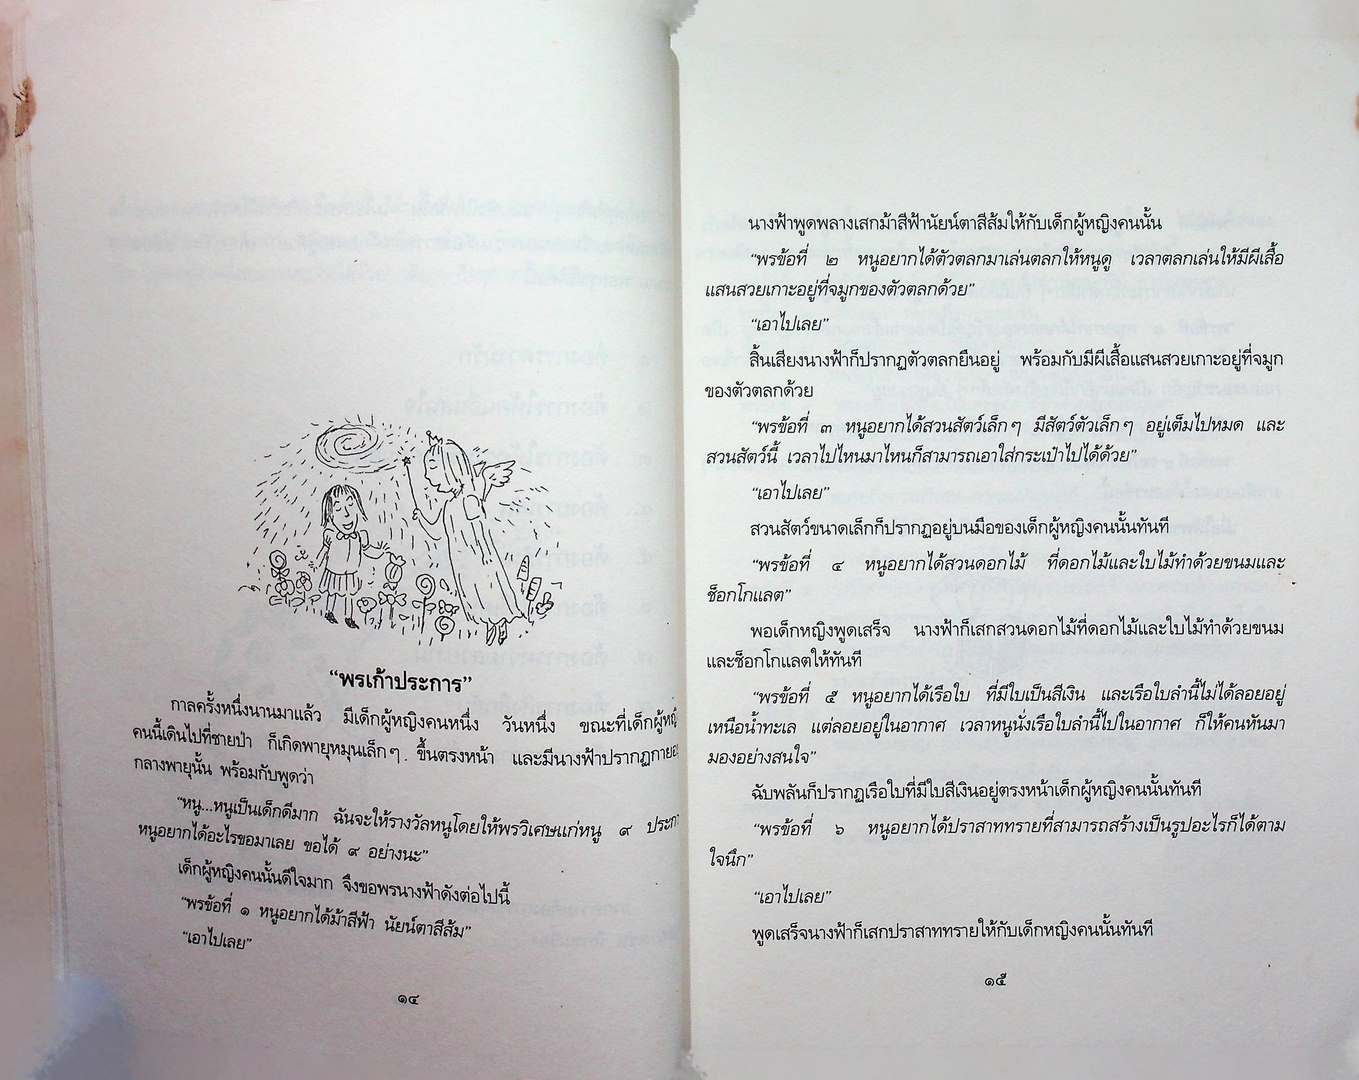 “พรเก้าประการ”
กาลครั้งหนึ่งนานมาแล้ว มีเด็กผู้หญิงคนหนึ่ง วันหนึ่ง ขณะที่เด็กผู้หญิง
คนนี้เดินไปที่ชายป่า ก็เกิดพายุหมุนเล็กๆ ขึ้นตรงหน้า และมีนางฟ้าปรากฏกาย
กลางพายุนั้น พร้อมกับพูดว่า
“หนู...หนูเป็นเด็กดีมาก ฉันจะให้รางวัลหนูโดยให้พรวิเศษแก่หนู ๙
หนูอยากได้อะไรขอมาเลย ขอได้ ๙ อย่างนะ”
เด็กผู้หญิงคนนั้นดีใจมาก จึงขอพรนางฟ้าดังต่อไปนี้
“พรข้อที่ ๑ หนูอยากได้ม้าสีฟ้า นัยน์ตาสีส้ม”
“เอาไปเลย”
๑๔
นางฟ้าพูดพลางเสกม้าสีฟ้านัยน์ตาสีส้มให้กับเด็กผู้หญิงคนนั้น
“พรข้อที่ ๒ หนูอยากได้ตัวตลกมาเล่นตลกให้หนูดู เวลาตลกเล่นให้มีผีเสื้อ
แสนสวยเกาะอยู่ที่จมูกของตัวตลกด้วย”
“เอาไปเลย”
สิ้นเสียงนางฟ้าก็ปรากฏตัวตลกยืนอยู่ พร้อมกับมีผีเสื้อแสนสวยเกาะอยู่ที่จมูก
ของตัวตลกด้วย
“พรข้อที่ ๓ หนูอยากได้สวนสัตว์เล็กๆ มีสัตว์ตัวเล็กๆ อยู่เต็มไปหมด และ
สวนสัตว์นี้ เวลาไปไหนมาไหนก็สามารถเอาใส่กระเป๋าไปได้ด้วย”
“เอาไปเลย”
สวนสัตว์ขนาดเล็กก็ปรากฏอยู่บนมือของเด็กผู้หญิงคนนั้นทันที
“พรข้อที่ ๔ หนูอยากได้สวนดอกไม้ ที่ดอกไม้และใบไม้ทำด้วยขนมและ
ช็อกโกแลต”
พอเด็กหญิงพูดเสร็จ นางฟ้าก็เสกสวนดอกไม้ที่ดอกไม้และใบไม้ทำด้วยขนม
และช็อกโกแลตให้ทันที
“พรข้อที่ ๕ หนูอยากได้เรือใบ ที่มีใบเป็นสีเงิน และเรือใบลำนี้ไม่ได้ลอยอยู่
เหนือน้ำทะเล แต่ลอยอยู่ในอากาศ เวลาหนูนั่งเรือใบลำนี้ไปในอากาศ ก็ให้คนหันมา
มองอย่างสนใจ”
ฉับพลันก็ปรากฏเรือใบที่มีใบสีเงินอยู่ตรงหน้าเด็กผู้หญิงคนนั้นทันที
“พรข้อที่ ๖ หนูอยากได้ปราสาททรายที่สามารถสร้างเป็นรูปอะไรก็ได้ตาม
ใจนึก”
“เอาไปเลย”
พูดเสร็จนางฟ้าก็เสกปราสาททรายให้กับเด็กหญิงคนนั้นทันที
๑๕